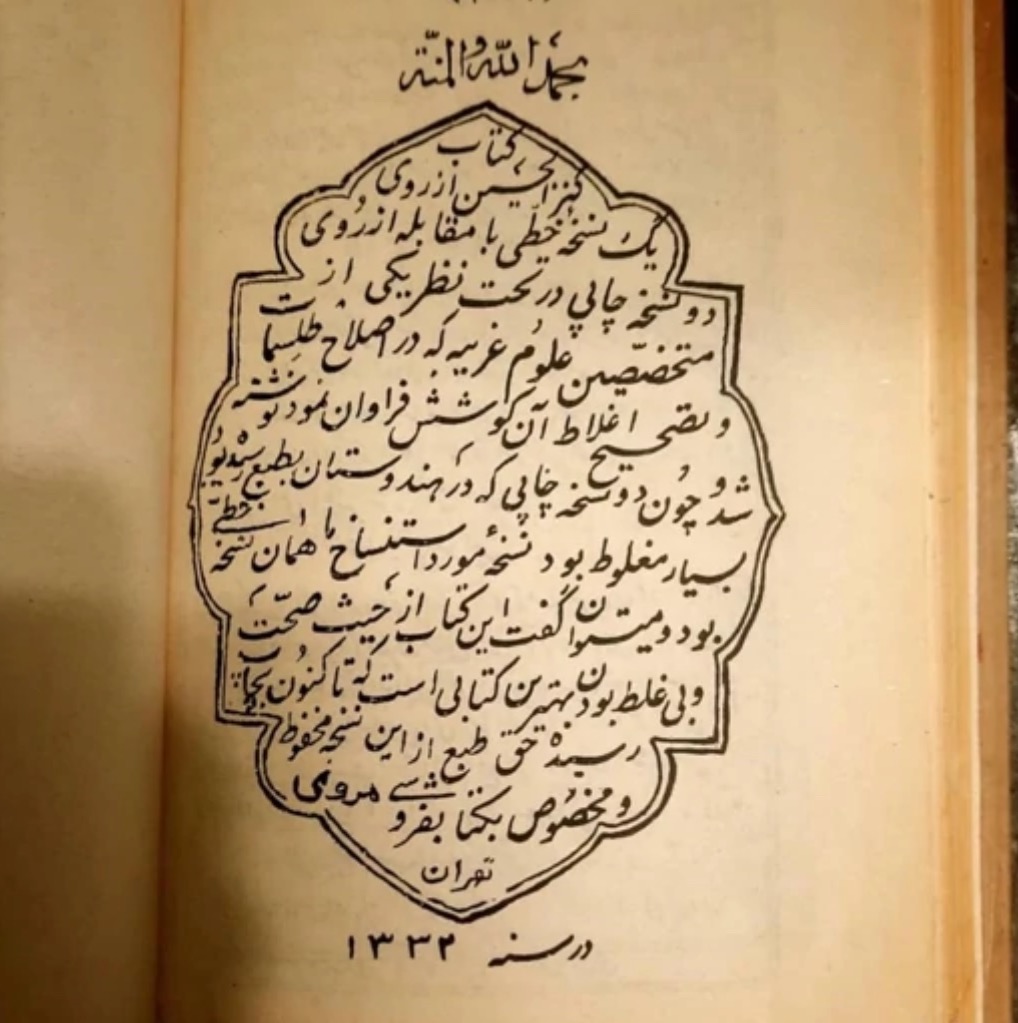 بحمد الله والمنّة
کتاب
کنز الحسین از روی
یک نسخهٔ خطّی با مقابله از رُوی
دو نسخه چاپی در تحت نظر یکی از
متخصّصین علوم غریبه که در اصلاح طلسمات
و تصحیح اغلاط آن کوشش فراوان نمود نوشته
شد و چون دو نسخه چاپی که در هندوستان بطبع رسیدبُو
بسیار مغلوط بود نسخهٔ مورد استنساخ ما همان نسخه خطّی است
بود و میتوان گفت این کتاب از حیث صحّت
و بی غلط بودن بهترین کتابی است که تا کنون بچاپ
رسیده حق طبع از این نسخه محفوظ
و مخصُوص بکتابفروشی مروی
تهران
در سنه ۱۳۳۲